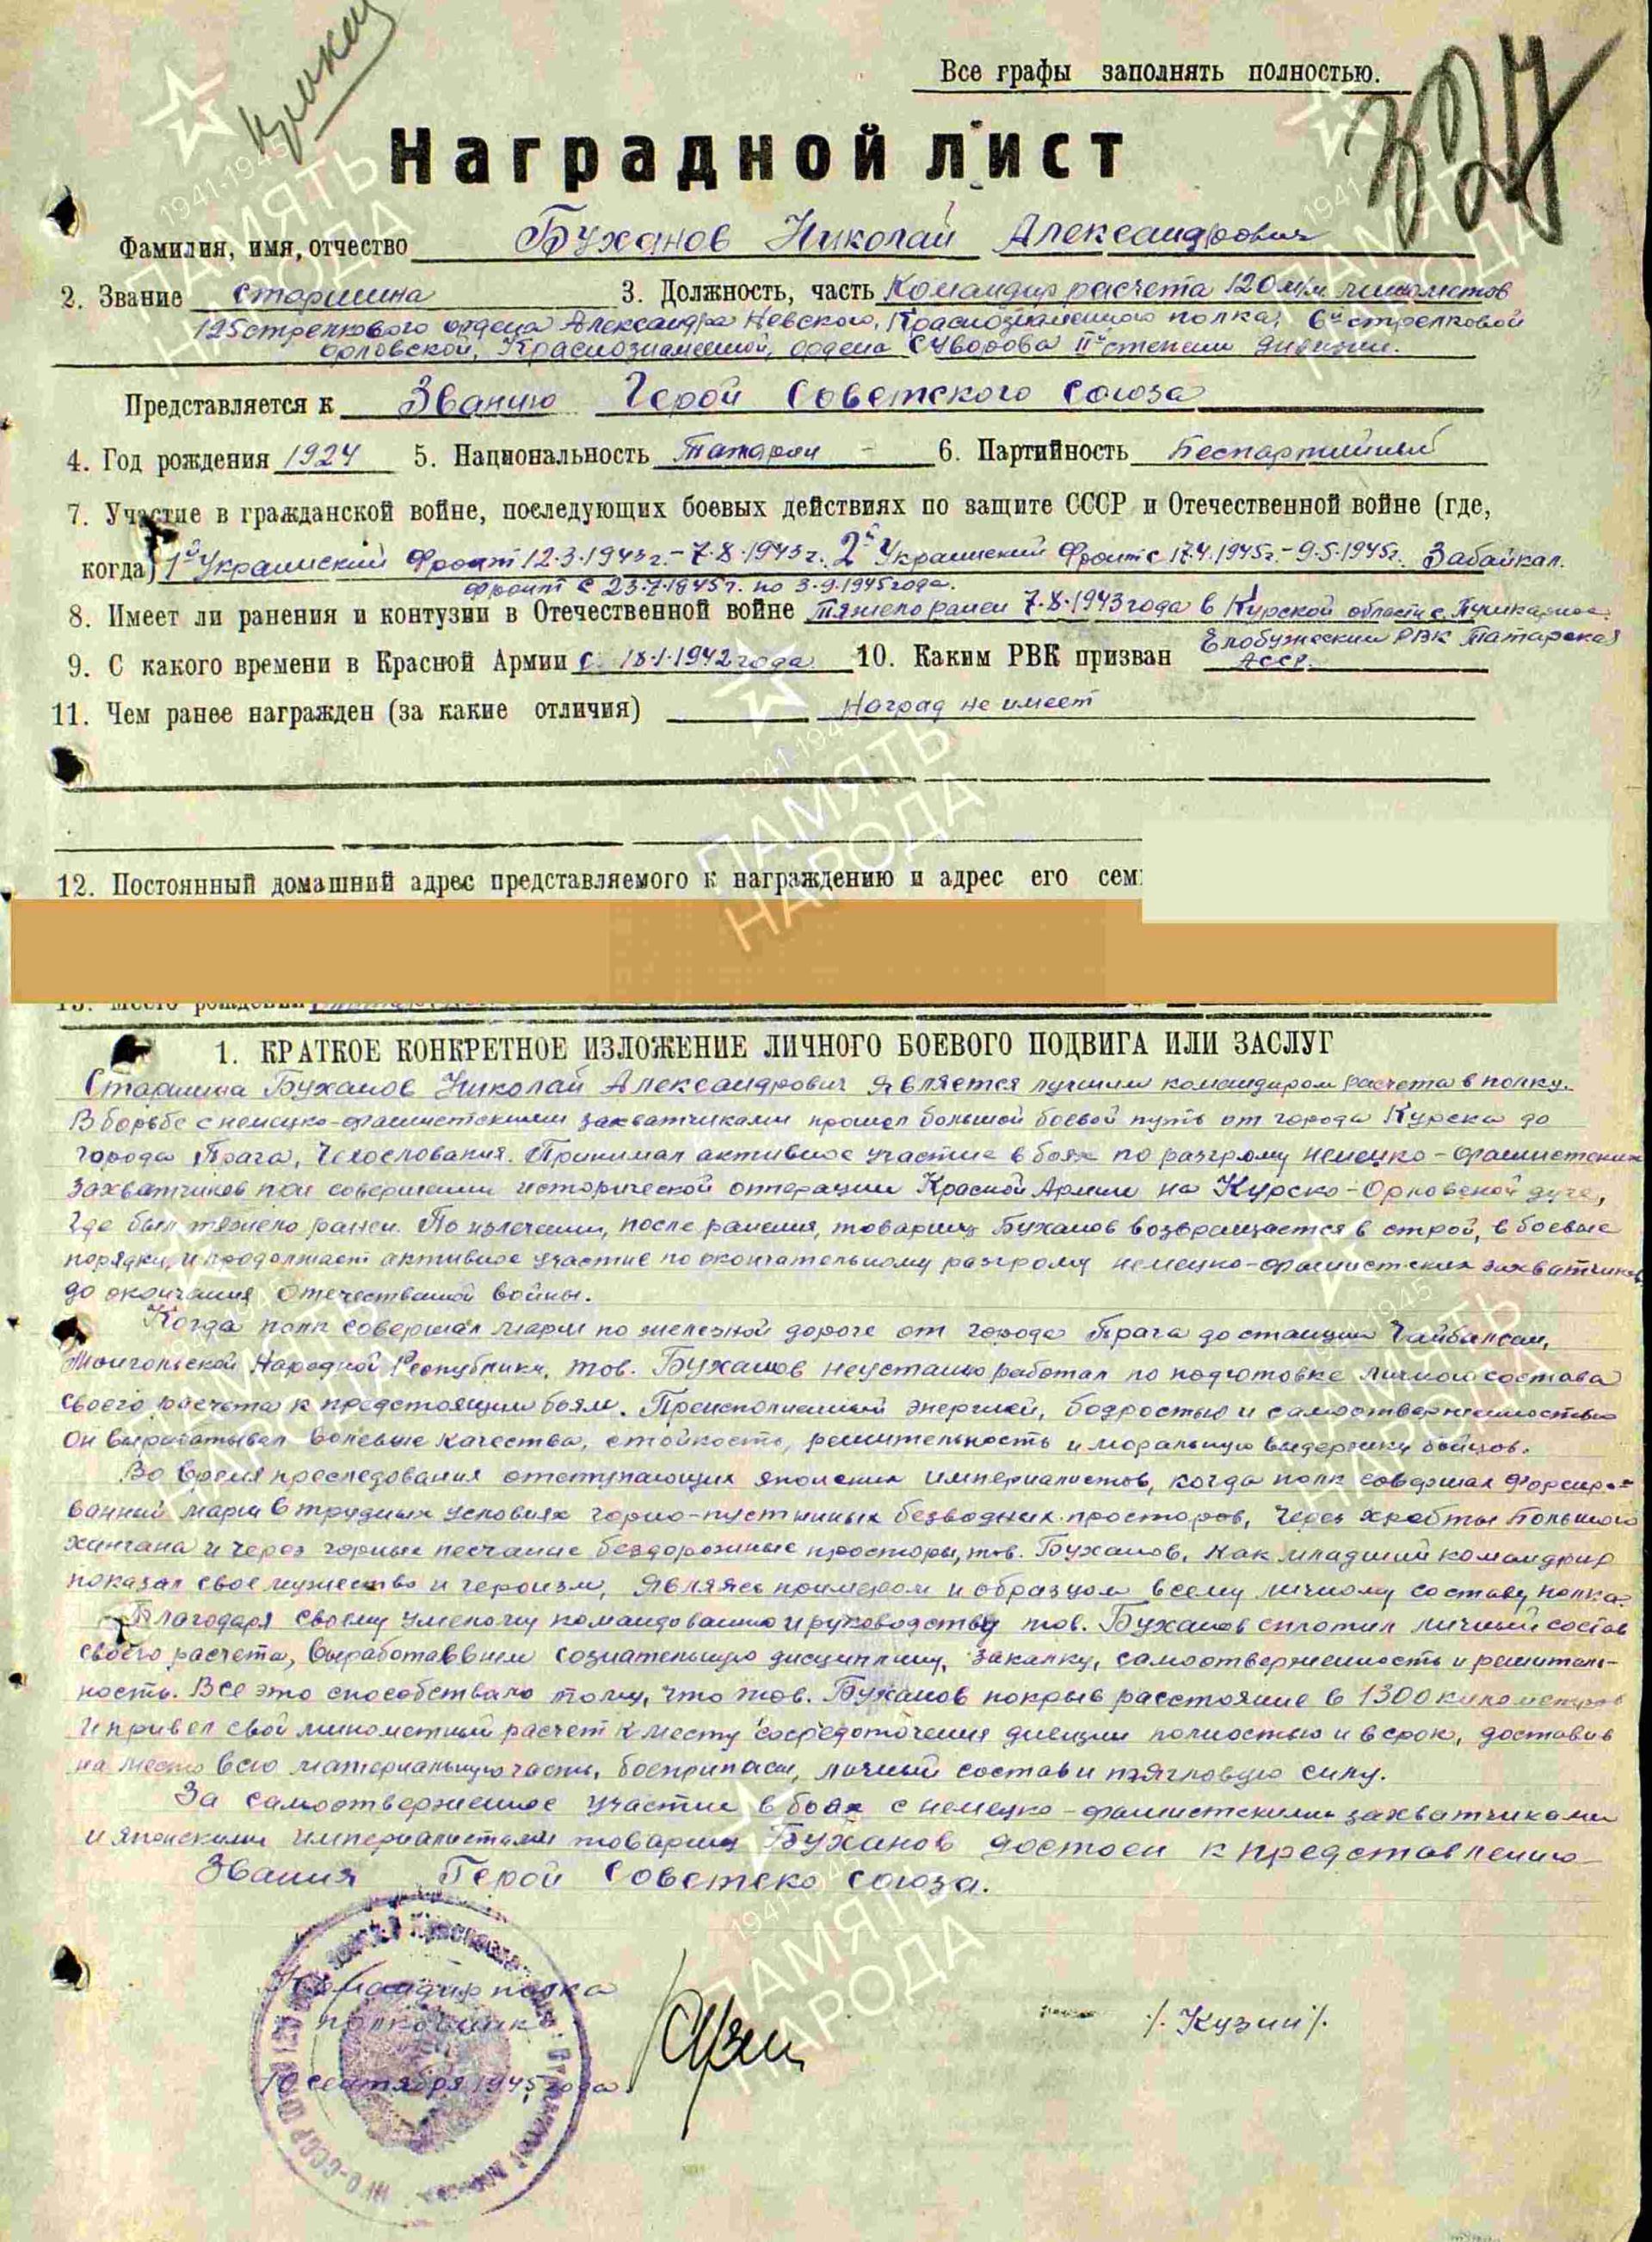 Все графы заполнять полностью.
327
Наградной лист
Фамилия, имя, отчество Буханов Николай Александрович
2. Звание Старшина 3. Должность, часть Командир расчета 120 м/м минометов
125 стрелкового ордена Александра Невского, Краснознаменного полка, 6й стрелковой
Орловской, Краснознаменной, ордена Суворова IIй степени дивизии.
Представляется к Званию Герой Советского Союза
4. Год рождения 1924 5. Национальность Татарин 6. Партийность Беспартийный
7. Участие в гражданской войне, последующих боевых действиях по защите СССР и Отечественной войне (где,
когда) 1й Украинский Фронт 12.3.1943г.-7.8.1943г. 2й Украинский Фронт с 17.4.1945г.-9.5.1945г. Забайкал.
Фронт с 23.7.1945г. по 3.9.1945 года.
8. Имеет ли ранения и контузии в Отечественной войне тяжело ранен 7.8.1943 года в Курской области с.
9. С какого времени в Красной Армии с 18.1.1942 года 10. Каким РВК призван Елабужский РВК Татарская
АССР.
11. Чем ранее награжден (за какие отличия) Наград не имеет
12. Постоянный домашний адрес представляемого к награждению и адрес его сем
13. Место рождения
1. КРАТКОЕ КОНКРЕТНОЕ ИЗЛОЖЕНИЕ ЛИЧНОГО БОЕВОГО ПОДВИГА ИЛИ ЗАСЛУГ
Старшина Буханов Николай Александрович является лучшим командиром расчета в полку.
В борьбе с немецко-фашистскими захватчиками прошел большой боевой путь от города Курска до
города Прага, Чехословакия. Принимал активное участие в боях по разгрому немецко-фашистских
захватчиков при совершении исторической опперации Красной Армии на Курско-Орловской дуге,
где был тяжело ранен. По излечении, после ранения, товарищ Буханов возвращается в строй, в боевые
порядки, и продолжает активное участие по окончательному разгрому немецко-фашистских захватчиков
до окончания Отечественной войны.
Когда полк совершал марш по железной дороге от города Прага до станции Чайбалсан,
Монгольской Народной Республики, тов. Буханов неустанно работал по подготовке личного состава
своего расчета к предстоящим боям. Преисполненный энергией, бодростью и самоотверженностью
он вырабатывал волевые качества, стойкость, решительность и моральную выдержку бойцов.
Во время преследования отступающих японских империалистов, когда полк совершал форсиро-
ванный марш в трудных условиях горно-пустынных безводных просторов, через хребты Большого
Хингана и через горные песчаные бездорожные просторы, тов. Буханов, как младший командир
показал свое мужество и героизм, являясь примером и образцом всему личному составу полка.
Благодаря своему умелому командованию и руководству тов. Буханов сплотил личный состав
своего расчета, выработав в нем сознательную дисциплину, закалку, самоотверженность и решитель-
ность. Все это способствало тому, что тов. Буханов покрыв расстояние в 1300 километров
и привел свой минометный расчет к месту сосредоточения дивизии полностью и в срок, доставив
на место всю материальную часть, боеприпасы, личный состав и тягловую силу.
За самоотверженное участие в боях с немецко-фашистскими захватчиками
и японскими империалистами товарищ Буханов достоен к представлению
Звания Герой Советско Союза.
Командир полка
полковник
/. Кузин /.
10 сентября 1945 года
1941-1945
ПАМЯТЬ
НАРОДА